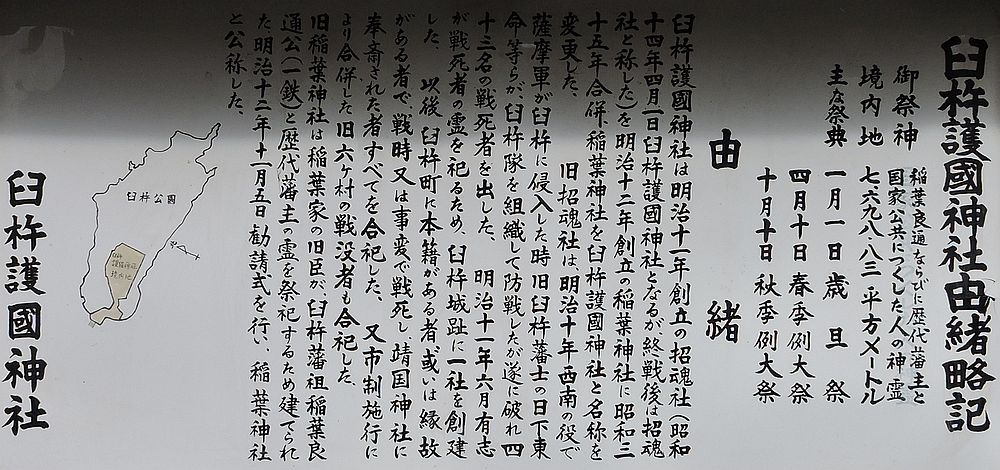 臼杵護國神社由緒略記
御祭神 稲葉良通ならびに歴代藩主と
国家公共につくした人の神霊
境内地 七六九八・八三平方メートル
主な祭典 一月一日 歳旦祭
四月十日 春季例大祭
十月十日 秋季例大祭
由緒
臼杵護國神社は明治十一年創立の招魂社(昭和
十四年四月一日臼杵護國神社となるが終戦後は招魂
社と称した)を明治十二年創立の稲葉神社に昭和三
十五年合併、稲葉神社を臼杵護國神社と名称を
変更した。 旧招魂社は明治十年西南の役で
薩摩軍が臼杵に侵入した時旧臼杵藩士の日下東
命等らが臼杵隊を組織して防戦したが遂に破れ四
十三名の戦死者を出した。 明治十一年六月有志
が戦死者の霊を祀るため、臼杵城趾に一社を創建
した。 以後臼杵町に本籍がある者或いは縁故
がある者で、戦時又は事変で戦死し、靖国神社に
奉斎された者すべてを合祀した。 又市制施行に
より合併した旧六ヶ村の戦没者も合祀した。
旧稲葉神社は稲葉家の旧臣が臼杵藩祖稲葉良
通公(一鉄)と歴代藩主の霊を祭祀するため建てられ
た明治十二年十一月五日勧請式を行い、稲葉神社
と公称した。
臼杵公園
臼杵
護國神社
境内地
臼杵護國神社